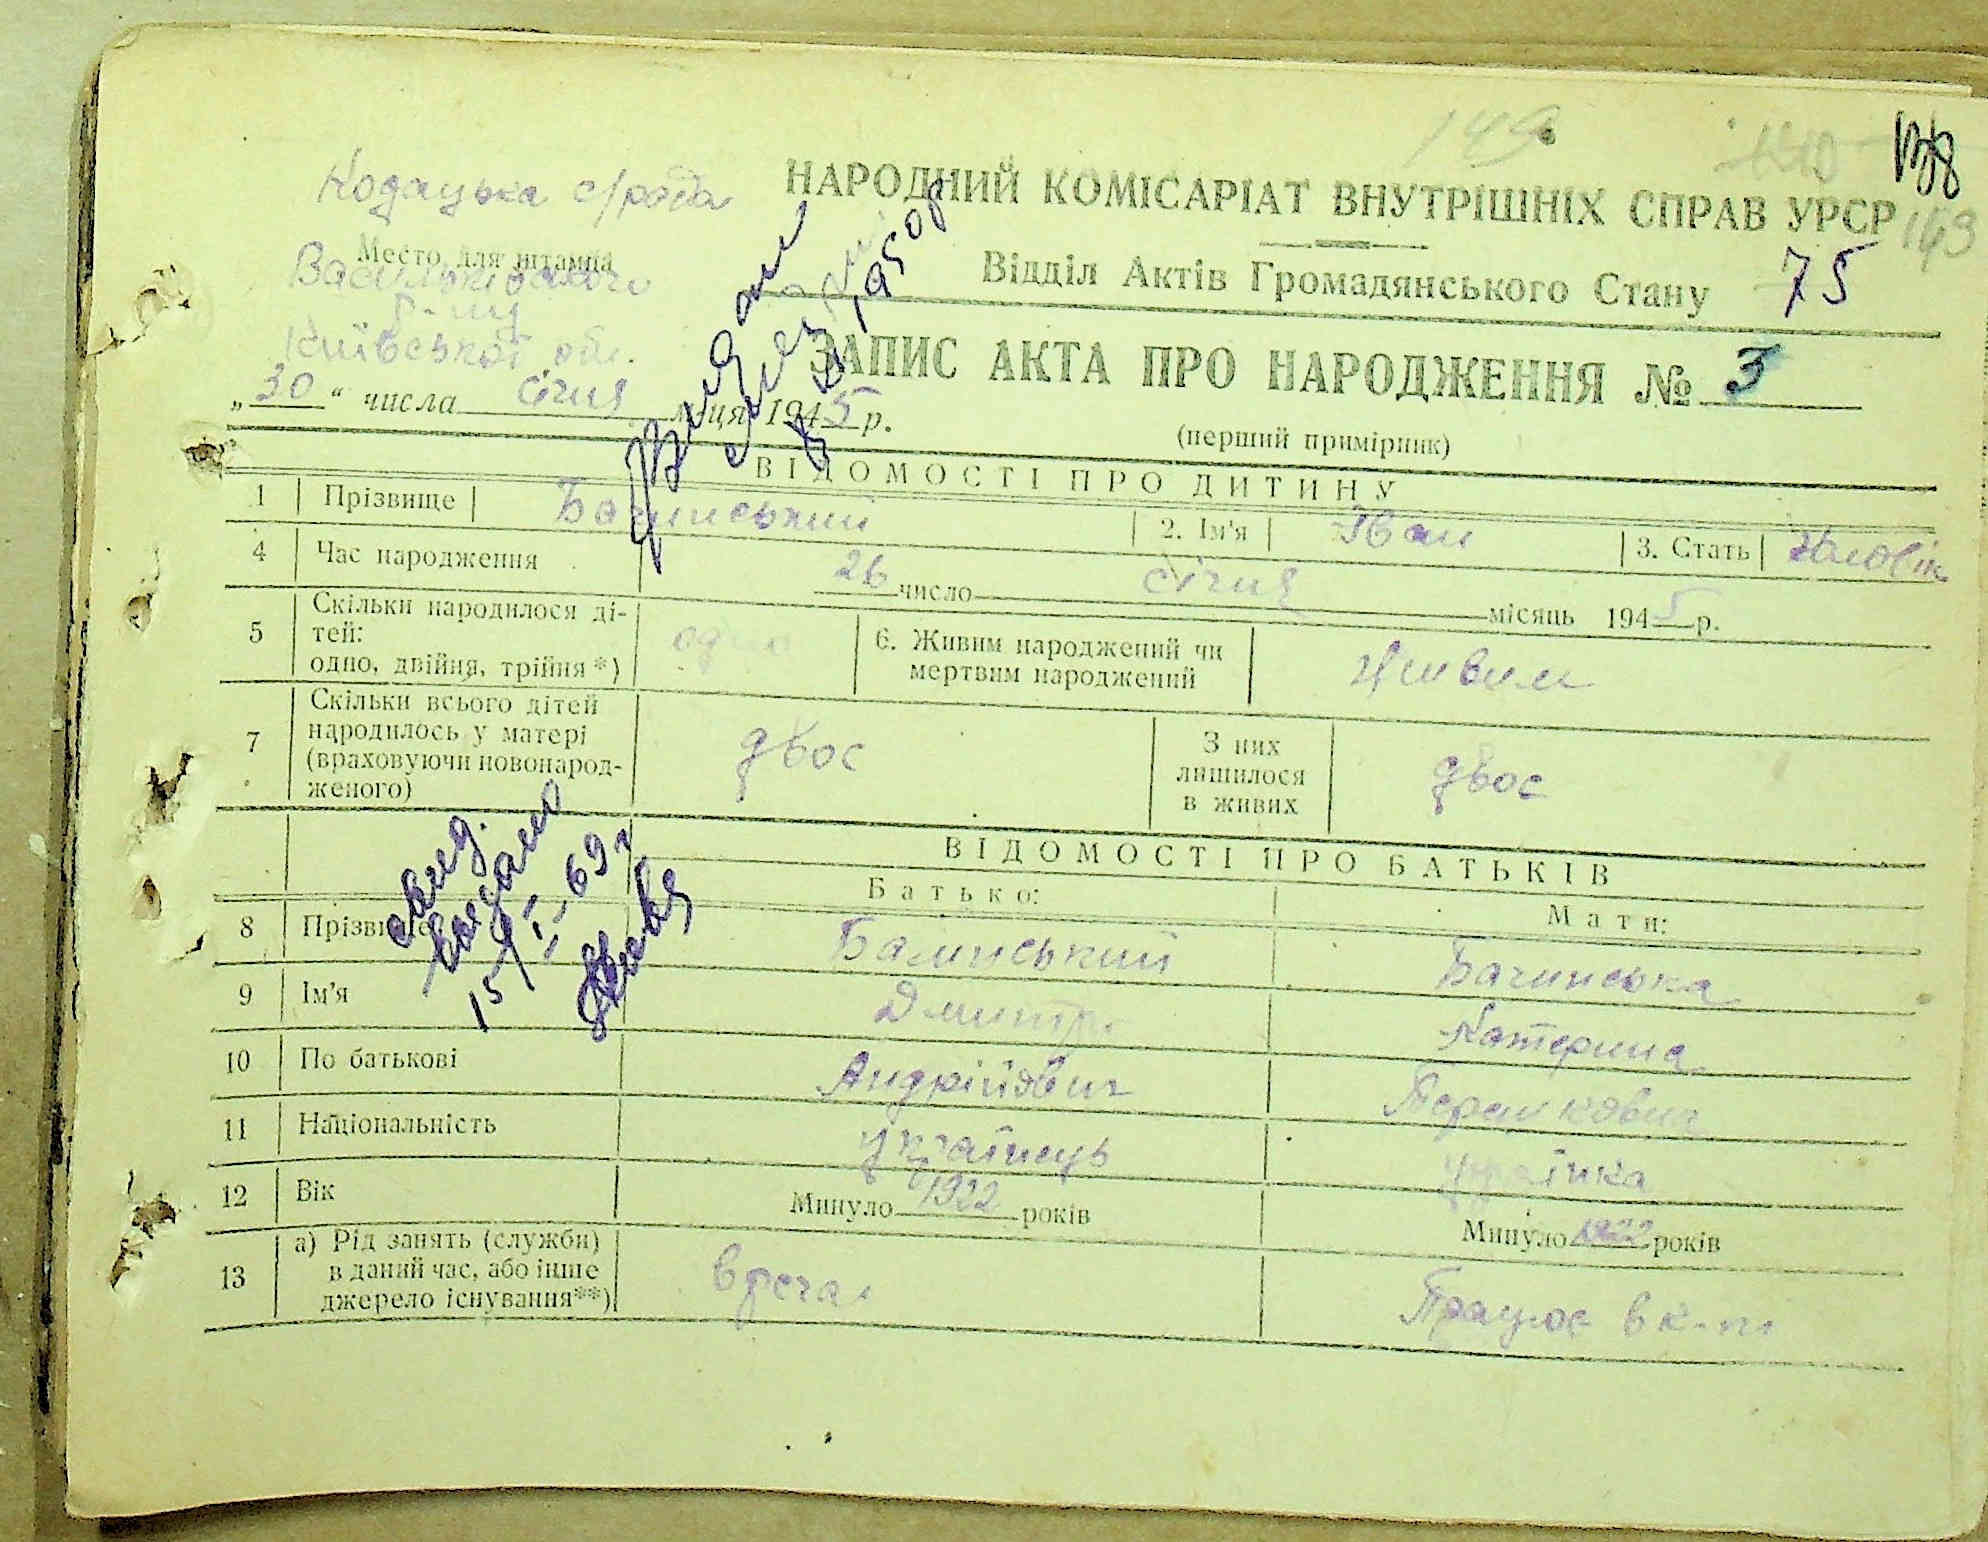 149
143
Кодацька с/рада
НАРОДНИЙ КОМІСАРІАТ ВНУТРІШНІХ СПРАВ УРСР
Место для штампа
Васильківського
р-ну
Київської обл.
Відділ Актів Громадянського Стану 75
ЗАПИС АКТА ПРО НАРОДЖЕННЯ № 3
„30“ числа січня м-ця 1945 р.
(перший примірник)
ВІДОМОСТІ ПРО ДИТИНУ
1 Прізвище Бачинський 2. Ім'я Іван 3. Стать чоловік
4 Час народження 26 число січня місяць 1945 р.
5 Скільки народилося ді-
тей:
одно, двійня, трійня *) одно
6. Живим народжений чи
мертвим народжений живим
7 Скільки всього дітей
народилось у матері
(враховуючи новонарод-
женого) двоє
З них
лишилося
в живих двоє
ВІДОМОСТІ ПРО БАТЬКІВ
Батько: Мати:
8 Прізвище Бачинський Бачинська
9 Ім'я Дмитро Катерина
10 По батькові Андрійович
11 Національність українець українка
12 Вік Минуло 1922 років Минуло 1922 років
13 а) Рід занять (служби)
в даний час, або інше
джерело існування**) Працює в к-пі
свид.
выдано
15/II-69 г